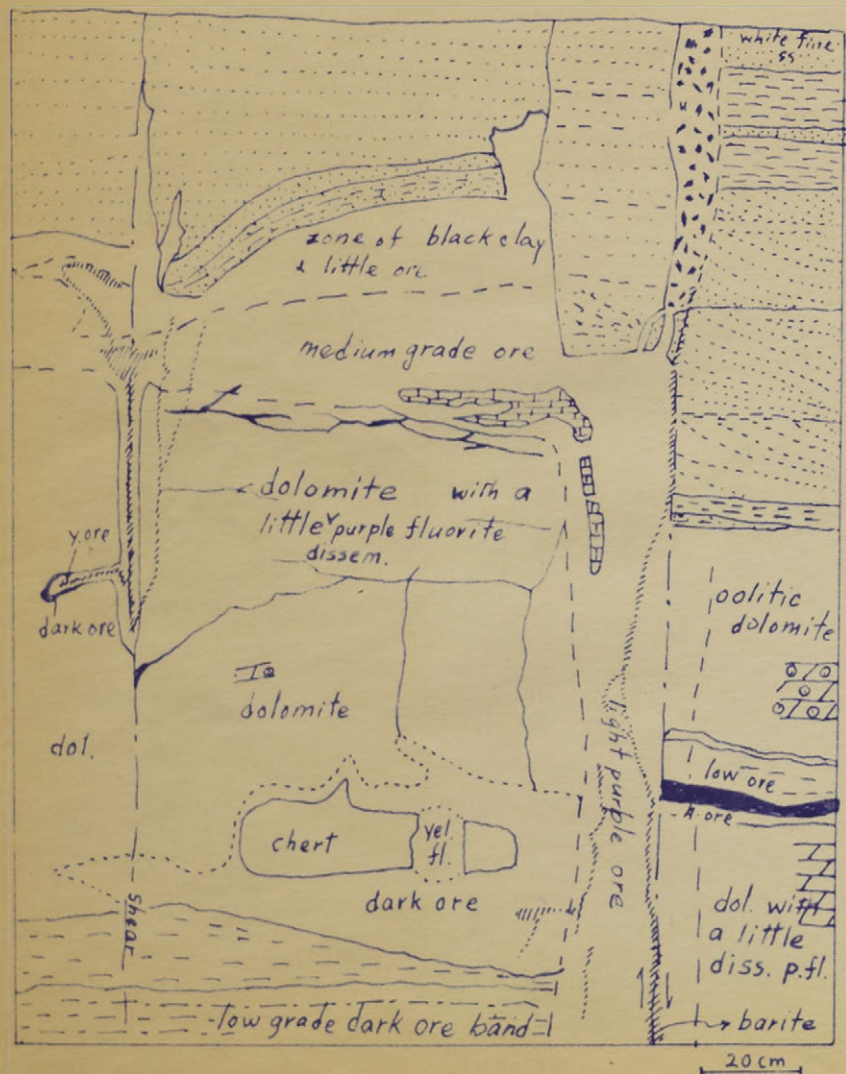 white fine
ss
zone of black clay
& little ore
medium grade ore
dolomite with a
little purple fluorite
dissem.
y. ore
dark ore
oolitic
dolomite
dolomite
dol.
light purple ore
low ore
A. ore
chert
yel.
fl.
dark ore
shear
dol. with
a little
diss. p.fl.
low grade dark ore band
barite
20 cm